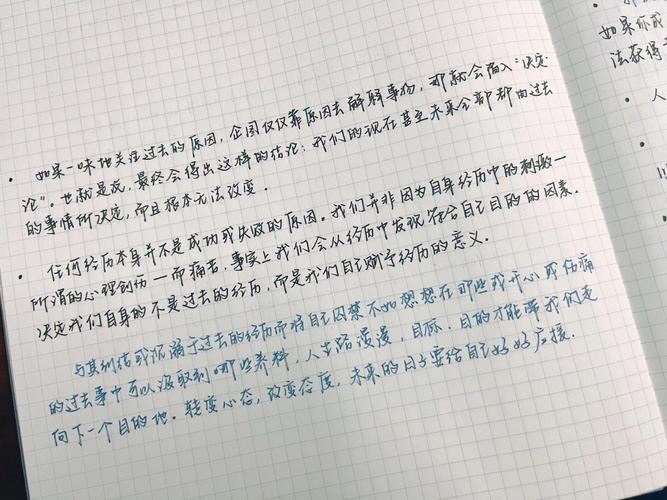 • 如果一味地关注过去的原因,企图仅仅靠原因去解释事物,那就会陷入“决定
论”。也就是说,最终会得出这样的结论:我们的现在甚至未来全部都由过去
的事情所决定,而且根本无法改变。
• 任何经历本身并不是成功或失败的原因。我们并非因为自身经历中的刺激—
所谓的心理创伤—而痛苦,事实上我们会从经历中发现符合自己目的的因素。
决定我们自身的不是过去的经历,而是我们自己赋予经历的意义。
与其纠结或沉溺于过去的经历而将自己囚禁不如想想在那些或开心或伤痛
的过去事中可以汲取到哪些养料,人生路漫漫,目标、目的才能带我们走
向下一个目的地。转变心态,改变态度,未来的日子要给自己好好应援.
如果你或
法获得
• 人